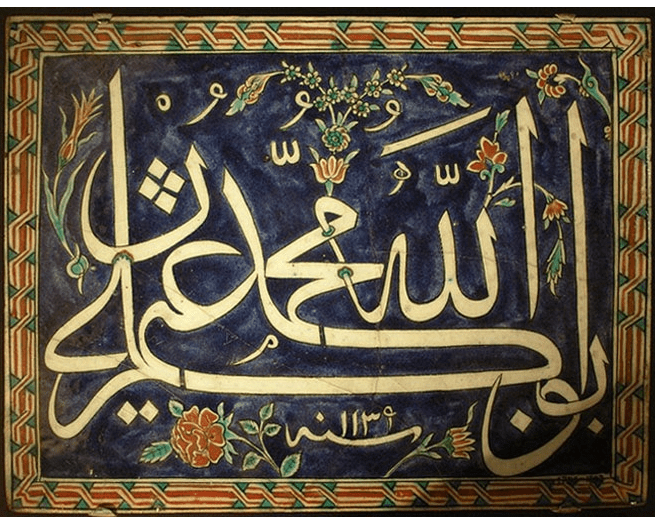 الله محمد ابو بكر عمر عثمان على
سنه ١١٣٩